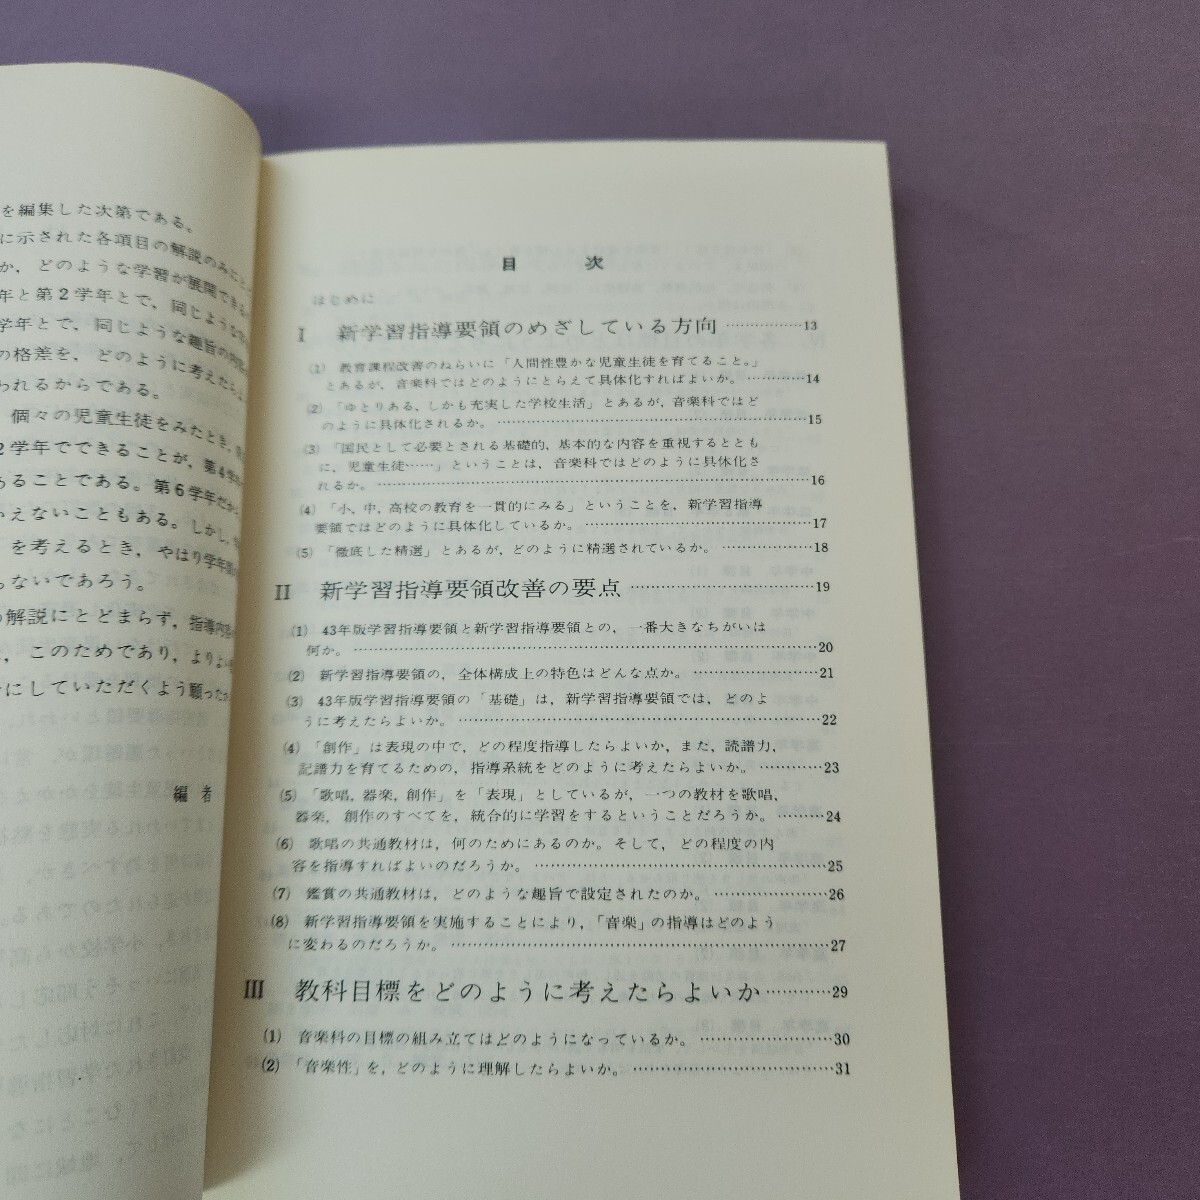 を編集した次第である。
に示された各項目の解説のみにと
か，どのような学習が展開できる
年と第2学年とで，同じような
学年とで，同じような趣旨の内容
の格差を，どのように考えたらよ
われるからである。
個々の児童生徒をみたとき，
2学年でできることが，第4学
あることである。第6学年だから
いえないこともある。しかし，
を考えるとき，やはり学年間
らないであろう。
の解説にとどまらず，指導内容
，このためであり，よりよい
にしていただくよう願ったか
編者
目次
はじめに
Ⅰ 新学習指導要領のめざしている方向……………13
(1) 教育課程改善のねらいに「人間性豊かな児童生徒を育てること。」
とあるが，音楽科ではどのようにとらえて具体化すればよいか。…………14
(2) 「ゆとりある，しかも充実した学校生活」とあるが，音楽科ではど
のように具体化されるか。……………………………15
(3) 「国民として必要とされる基礎的，基本的な内容を重視するととも
に，児童生徒……」ということは，音楽科ではどのように具体化さ
れるか。……………………………16
(4) 「小，中，高校の教育を一貫的にみる」ということを，新学習指導
要領ではどのように具体化しているか。……………………17
(5) 「徹底した精選」とあるが，どのように精選されているか。………………18
Ⅱ 新学習指導要領改善の要点……………………19
(1) 43年版学習指導要領と新学習指導要領との，一番大きなちがいは
何か。……………………………20
(2) 新学習指導要領の，全体構成上の特色はどんな点か。……………………21
(3) 43年版学習指導要領の「基礎」は，新学習指導要領では，どのよ
うに考えたらよいか。……………………………22
(4) 「創作」は表現の中で，どの程度指導したらよいか，また，読譜力，
記譜力を育てるための，指導系統をどのように考えたらよいか。…………23
(5) 「歌唱，器楽，創作」を「表現」としているが，一つの教材を歌唱，
器楽，創作のすべてを，統合的に学習をするということだろうか。………24
(6) 歌唱の共通教材は，何のためにあるのか。そして，どの程度の内
容を指導すればよいのだろうか。……………………………25
(7) 鑑賞の共通教材は，どのような趣旨で設定されたのか。…………………26
(8) 新学習指導要領を実施することにより，「音楽」の指導はどのよう
に変わるのだろうか。……………………………27
Ⅲ 教科目標をどのように考えたらよいか…………29
(1) 音楽科の目標の組み立てはどのようになっているか。…………………30
(2) 「音楽性」を，どのように理解したらよいか。……………………………31